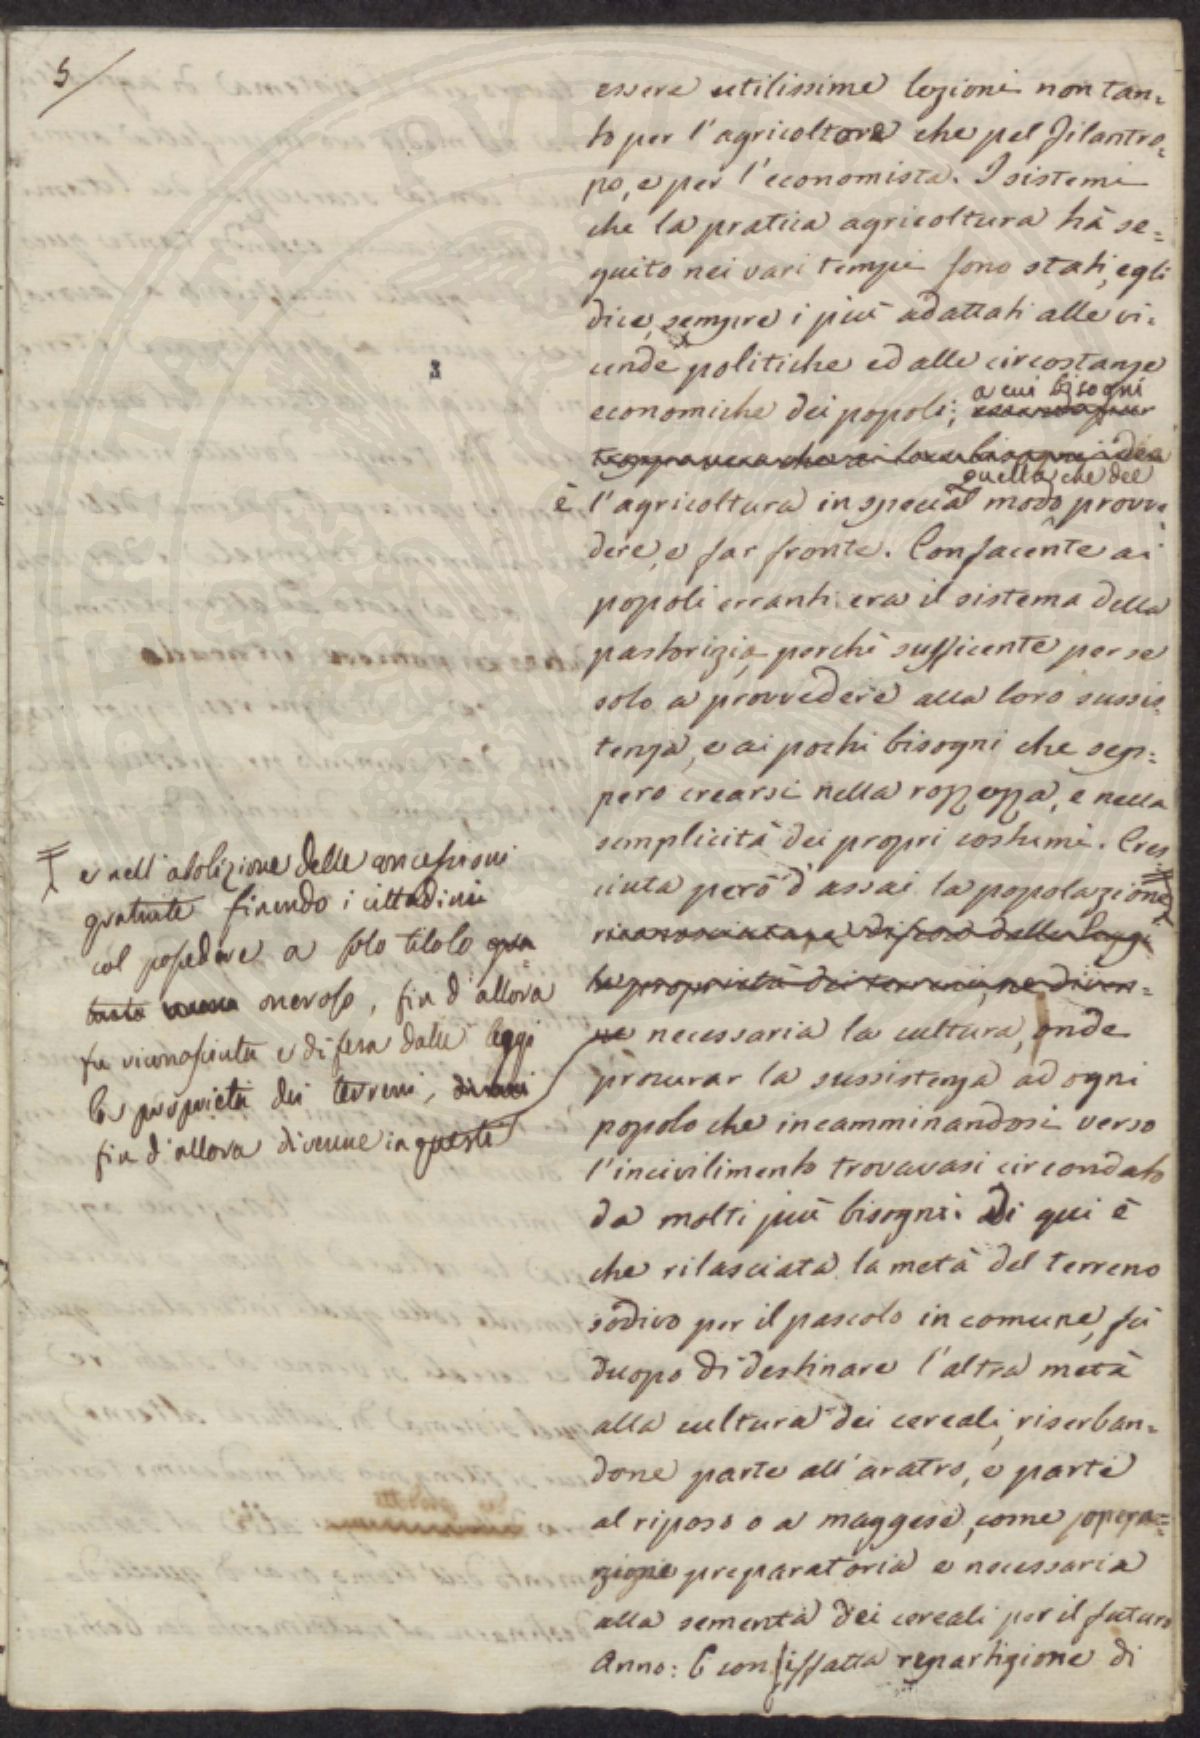 5
essere utilissime lezioni non tan=
to per l'agricoltore che pel filantro=
po, e per l'economista. I sistemi
che la pratica agricoltura hà se=
guito nei vari tempi sono stati, egli
dice, sempre i più adattati alle vi=
cende politiche ed alle circostanze
a cui bisogni
economiche dei popoli;
quella che dee
è l'agricoltura in special modo provve
dere, e far fronte. Confacente ai
popoli erranti era il sistema della
pastorizia, perchè sufficente per se
solo a provvedere alla loro sussis
tenza, e ai pochi bisogni che sep=
pero crearsi nella rozzezza, e nella
semplicità dei propri costumi. Cres
ciuta però d'assai la popolazione
riconosciuta, e difesa dalle leggi
la proprietà dei terreni, ne diven=
ne necessaria la cultura, onde
procurar la sussistenza ad ogni
popolo che incamminandosi verso
l'incivilimento trovavasi circondato
da molti più bisogni. Di qui è
che rilasciata la metà del terreno
sodivo per il pascolo in comune, fù
duopo di destinare l'altra metà
alla cultura dei cereali, riserban=
done parte all'aratro, e parte
al riposo o a maggese, come opera=
zione preparatoria e necessaria
alla sementa dei cereali per il futuro
Anno: E con siffatta repartizione di
e nell'abolizione delle concessioni
gratuite finendo i cittadini
col possedere a solo titolo
oneroso, fin d'allora
fu riconosciuta e difesa dalle leggi
la proprietà dei terreni,
fin d'allora divenne in questi